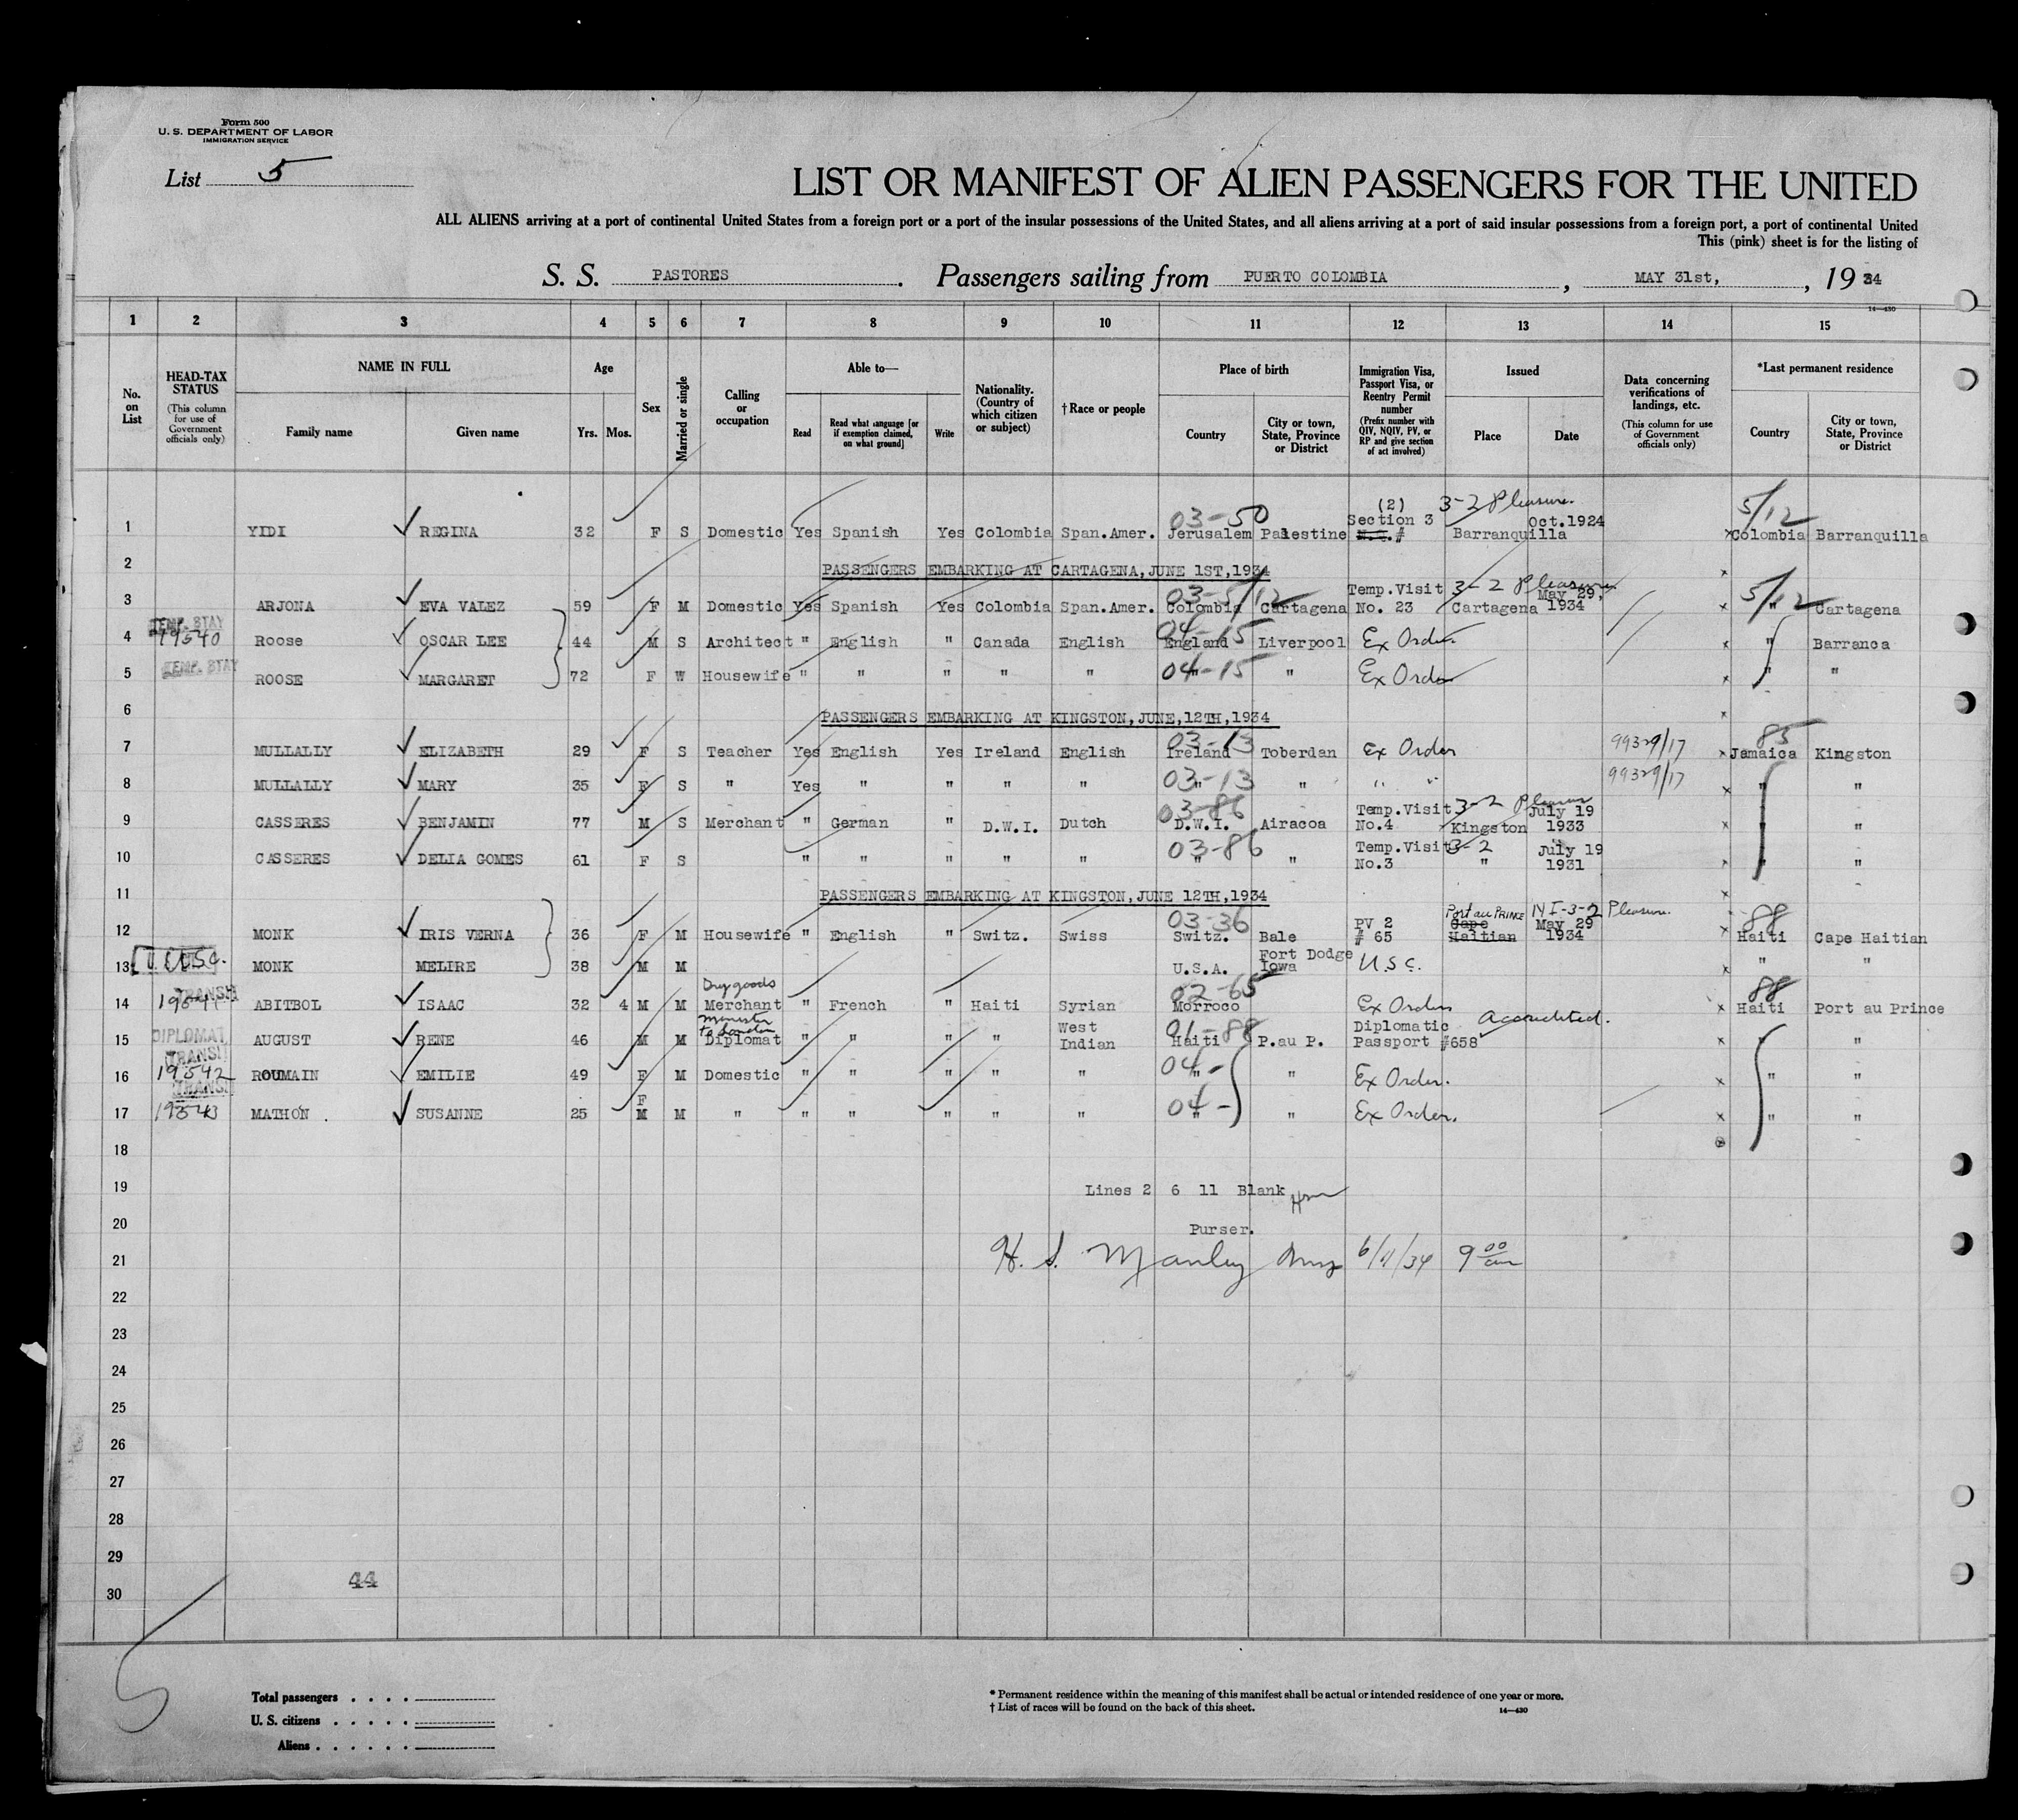 Form 500
U. S. DEPARTMENT OF LABOR
IMMIGRATION SERVICE
List 5
LIST OR MANIFEST OF ALIEN PASSENGERS FOR THE UNITED
ALL ALIENS arriving at a port of continental United States from a foreign port or a port of the insular possessions of the United States, and all aliens arriving at a port of said insular possessions from a foreign port, a port of continental United
This (pink) sheet is for the listing of
S. S. PASTORES. Passengers sailing from PUERTO COLOMBIA, MAY 31st, , 19 34
14—430
1 2 3 4 5 6 7 8 9 10 11 12 13 14 15
No. on List
HEAD-TAX STATUS (This column for use of Government officials only)
NAME IN FULL Family name Given name
Age Yrs. Mos.
Sex
Married or single
Calling or occupation
Able to— Read Read what language [or if exemption claimed, on what ground] Write
Nationality. (Country of which citizen or subject)
† Race or people
Place of birth Country City or town, State, Province or District
Immigration Visa, Passport Visa, or Reentry Permit number (Prefix number with QIV, NQIV, PV, or RP and give section of act involved)
Issued Place Date
Data concerning verifications of landings, etc. (This column for use of Government officials only)
*Last permanent residence Country City or town, State, Province or District
(2) 3-2 Pleasure.
03-50 Section 3 Oct.1924 5/12
1 YIDI REGINA 32 F S Domestic Yes Spanish Yes Colombia Span.Amer. Jerusalem Palestine # Barranquilla Colombia Barranquilla
2 PASSENGERS EMBARKING AT CARTAGENA,JUNE 1ST,1934
03-5/12 Temp.Visit 3-2 Pleasure May 29, 5/12
3 ARJONA EVA VALEZ 59 F M Domestic Yes Spanish Yes Colombia Span.Amer. Colombia Cartagena No. 23 Cartagena 1934 " Cartagena
TEMP. STAY 19540 04-15
4 Roose OSCAR LEE 44 M S Architect " English " Canada English England Liverpool Ex Order " Barranca
TEMP. STAY 04-15
5 ROOSE MARGARET 72 F W Housewife " " " " " " " Ex Order " "
6 PASSENGERS EMBARKING AT KINGSTON,JUNE,12TH,1934
03-13 99329/17 85
7 MULLALLY ELIZABETH 29 F S Teacher Yes English Yes Ireland English Ireland Toberdan Ex Order Jamaica Kingston
03-13 99329/17
8 MULLALLY MARY 35 F S " Yes " " " " " " " " " "
03-86 Temp.Visit 3-2 Pleasure July 19
9 CASSERES BENJAMIN 77 M S Merchant " German " D.W.I. Dutch D.W.I. Airacoa No.4 Kingston 1933 " "
03-86 Temp.Visit 3-2 July 19
10 CASSERES DELIA GOMES 61 F S " " " " " " " No.3 " 1931 " "
11 PASSENGERS EMBARKING AT KINGSTON,JUNE 12TH,1934
03-36 PV 2 Port au PRINCE Cape May 29 Pleasure. 88
12 MONK IRIS VERNA 36 F M Housewife " English " Switz. Swiss Switz. Bale # 65 Haitian 1934 Haiti Cape Haitian
Fort Dodge
13 U.S.C. MONK MELIRE 38 M M U.S.A. Iowa U.S.C. " "
TRANSIT Dry goods 02-65 88
14 ABITBOL ISAAC 32 4 M M Merchant " French " Haiti Syrian Morroco Ex Order Haiti Port au Prince
DIPLOMAT Minister to London West 01-88 Diplomatic Accredited.
15 AUGUST RENE 46 M M Diplomat " " " " Indian Haiti P.au P. Passport #658 " "
TRANSIT 19542 04-
16 ROUMAIN EMILIE 49 F M Domestic " " " " " " " Ex Order. " "
TRANSIT 19543 F 04-
17 MATHON . SUSANNE 25 M M " " " " " " " " Ex Order. " "
18
19 Lines 2 6 11 Blank
20 Purser.
21 H. S. Manley 9 00 am
22
23
24
25
26
27
28
29
30
44
5
Total passengers . . . .
U. S. citizens . . . . .
Aliens . . . . . .
* Permanent residence within the meaning of this manifest shall be actual or intended residence of one year or more.
† List of races will be found on the back of this sheet.
14—430